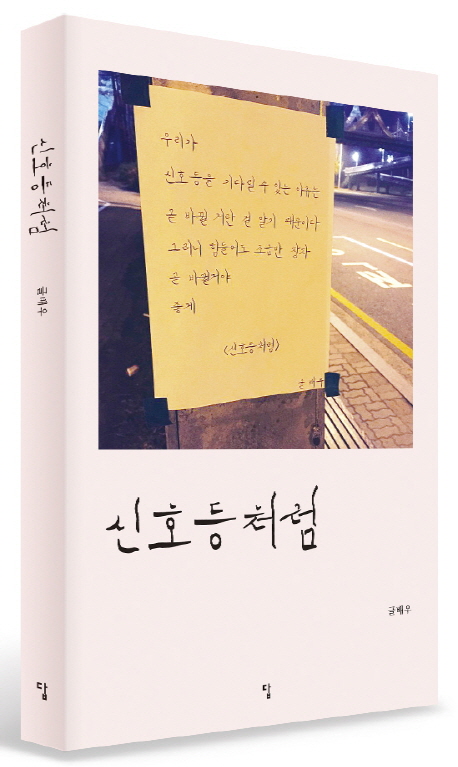 신호등처럼
글배우
답
우리가
신호등을 기다릴 수 있는 이유는
곧 바뀔 거란 걸 알기 때문이다
그러니 힘들어도 조금만 참자
곧 바뀔거야
좋게
<신호등처럼>
글배우
신호등처럼
글배우
답